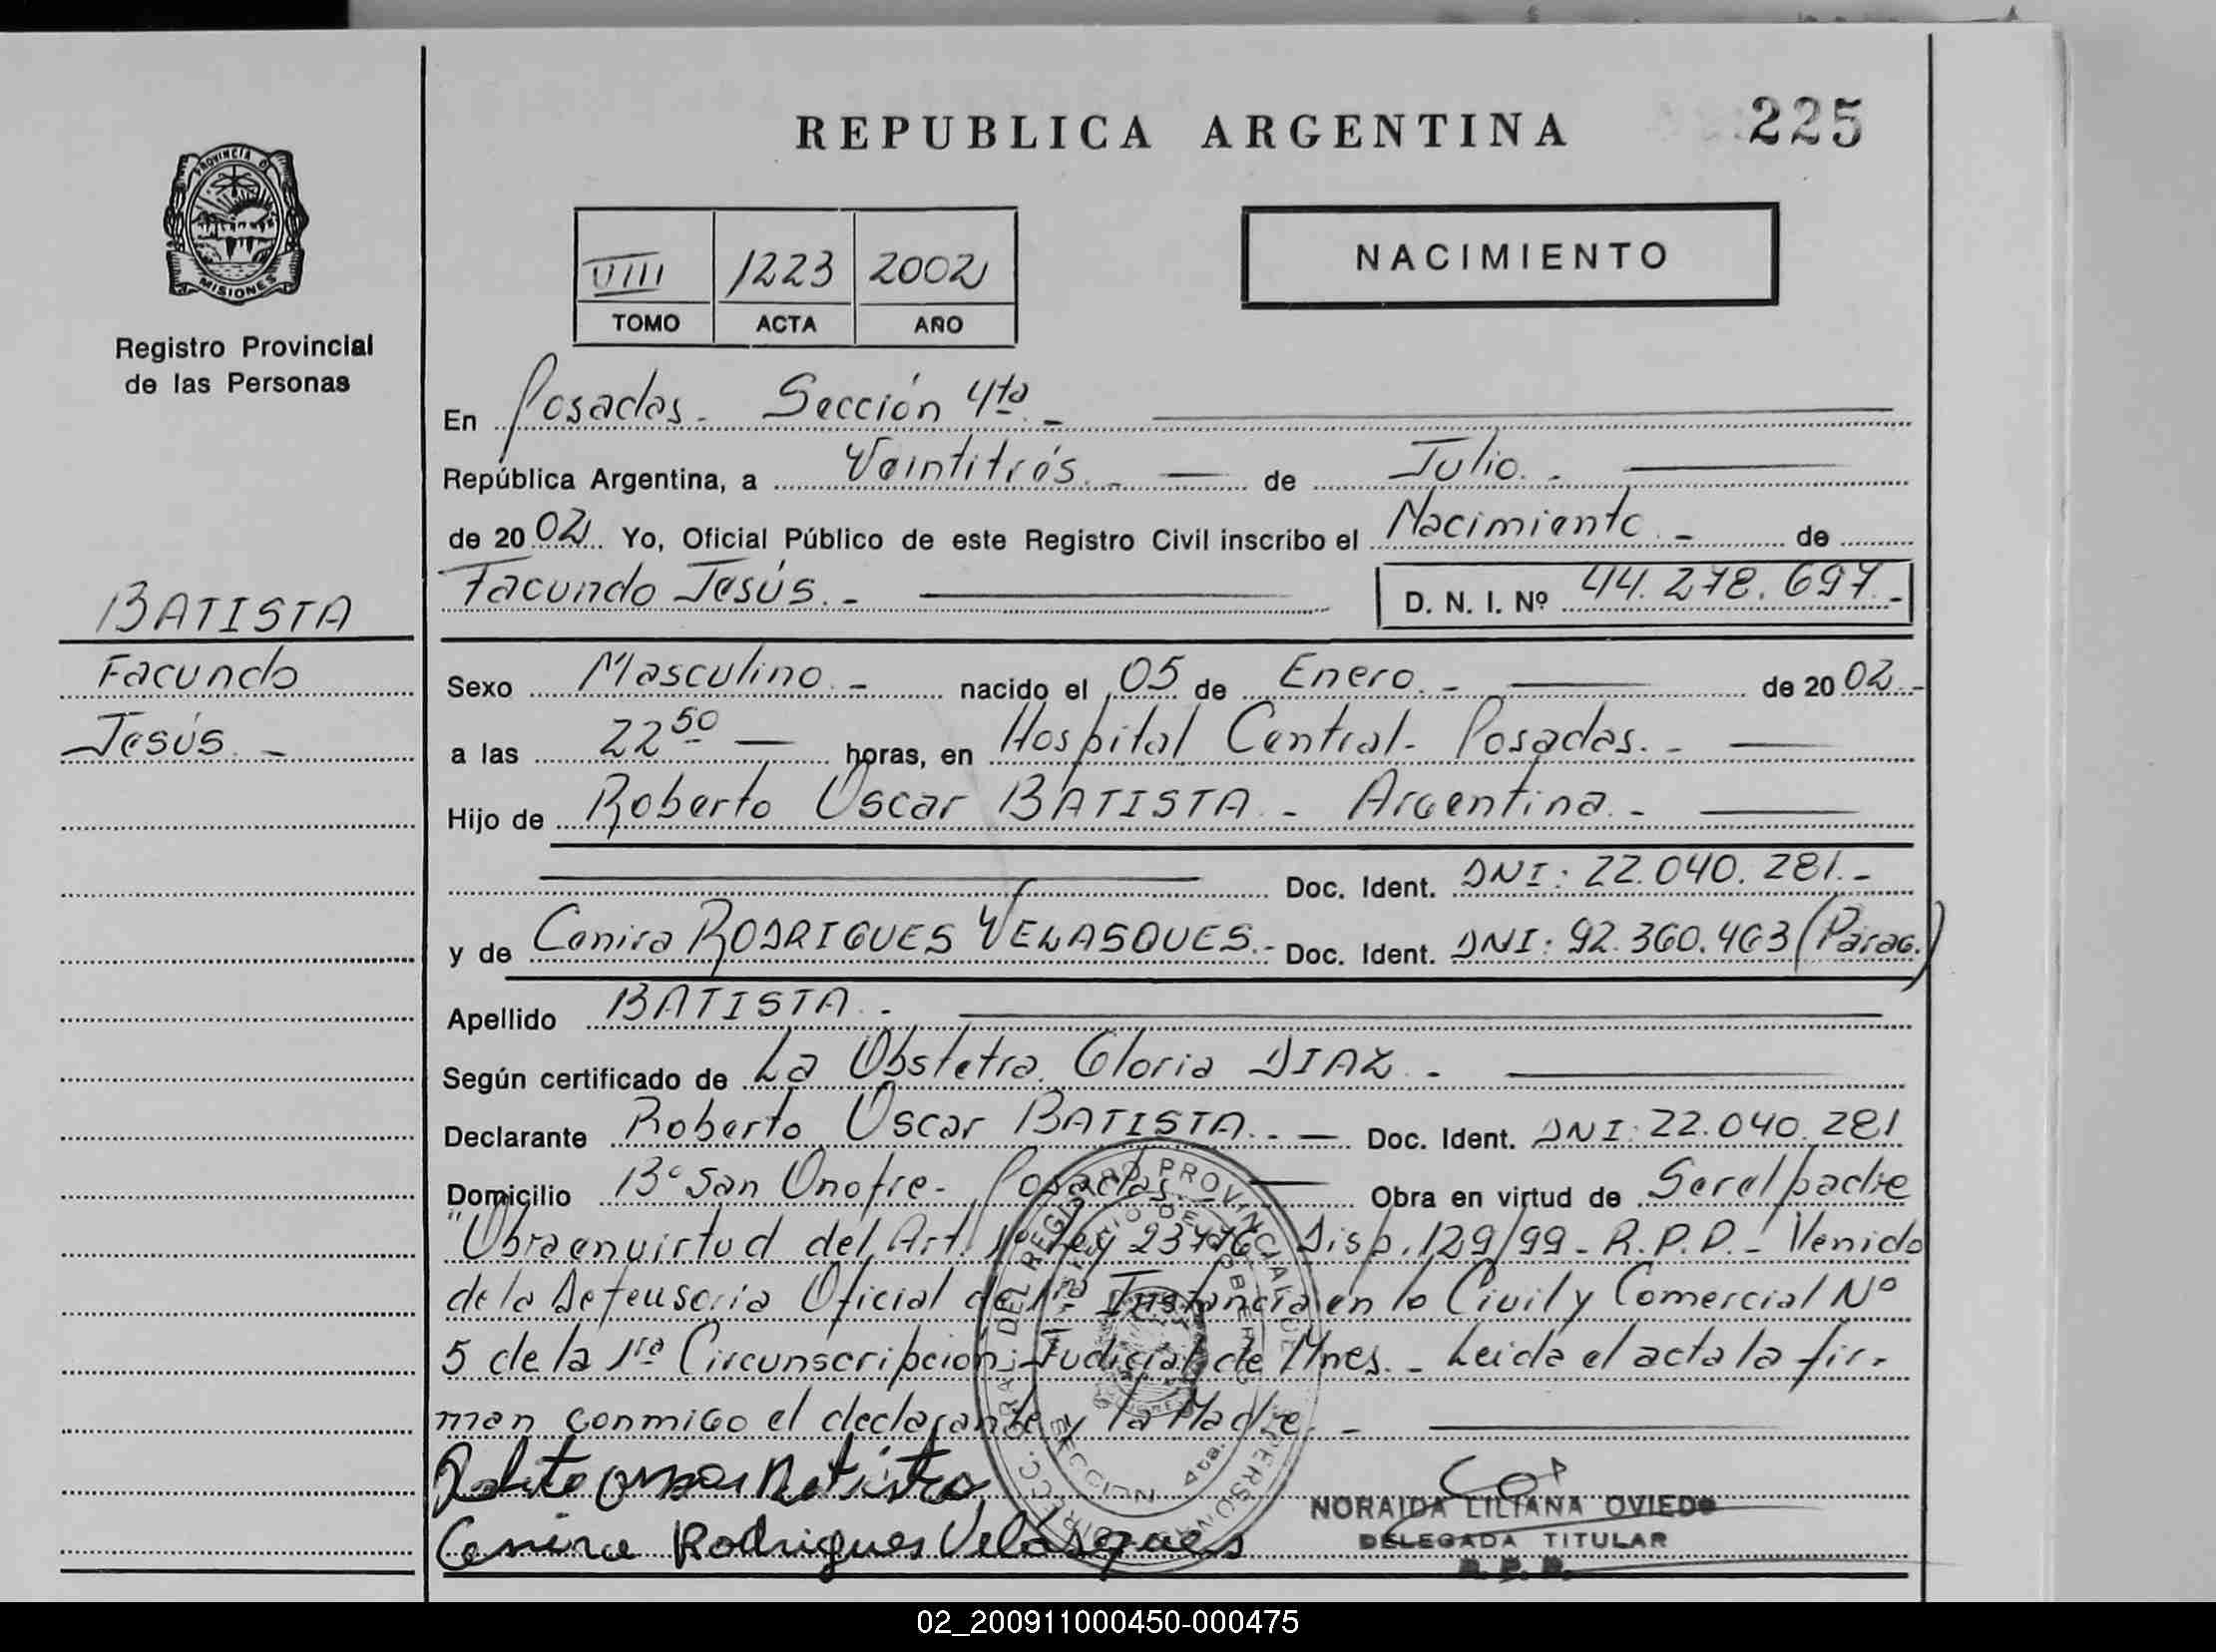 REPUBLICA ARGENTINA
225
PROVINCIA D
MISIONES
Registro Provincial
de las Personas
VIII 1223 2002
TOMO ACTA AÑO
NACIMIENTO
En Posadas - Sección 4ta -
República Argentina, a Veintitrés - de Julio. -
de 2002 Yo, Oficial Público de este Registro Civil inscribo el Nacimiento - de
Facundo Jesús. - D. N. I. Nº 44.278.697 -
BATISTA
Facundo
Jesús. -
Sexo Masculino. - nacido el 05 de Enero. - de 2002 -
a las 22 50 horas, en Hospital Central - Posadas. -
Hijo de Roberto Oscar BATISTA - Argentina. -
Doc. Ident. DNI: 22.040.281. -
y de Cenira RODRIGUES VELASQUES - Doc. Ident. DNI: 92.360.463 (Parag.)
Apellido BATISTA. -
Según certificado de La Obstetra Gloria DIAZ. -
Declarante Roberto Oscar BATISTA. - Doc. Ident. DNI: 22.040.281
Domicilio Bº San Onofre - Posadas. - Obra en virtud de Ser el padre
"Obra en virtud del Art. 1º Ley 23776 Disp. 129/99 - R.P.P. - Venido
de la Defensoria Oficial de 1ra Instancia en lo Civil y Comercial Nº
5 de la 1ra Circunscripción Judicial de Mnes. - Leida el acta la fir-
man conmigo el declarante y la Madre. -
Roberto Oscar Batista
Cenira Rodrigues Velásques
NORAIDA LILIANA OVIEDO
DELEGADA TITULAR
R. P. P.
DIRECC. GRAL. DEL REGISTRO PROVINCIAL DE
SECCION 4ta.
02_200911000450-000475